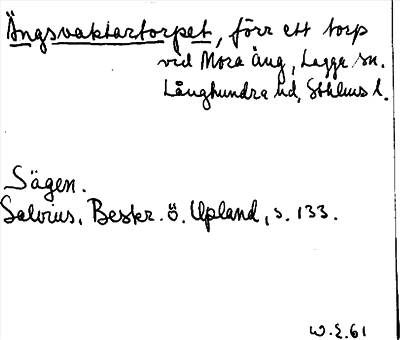 Ängsvaktartorpet, förr ett torp
vid Mora äng, Lagga sn.
Långhundra hd, Sthlms l.
Sägen.
Salvius, Beskr. ö. Upland, s. 133.
W.E. 61